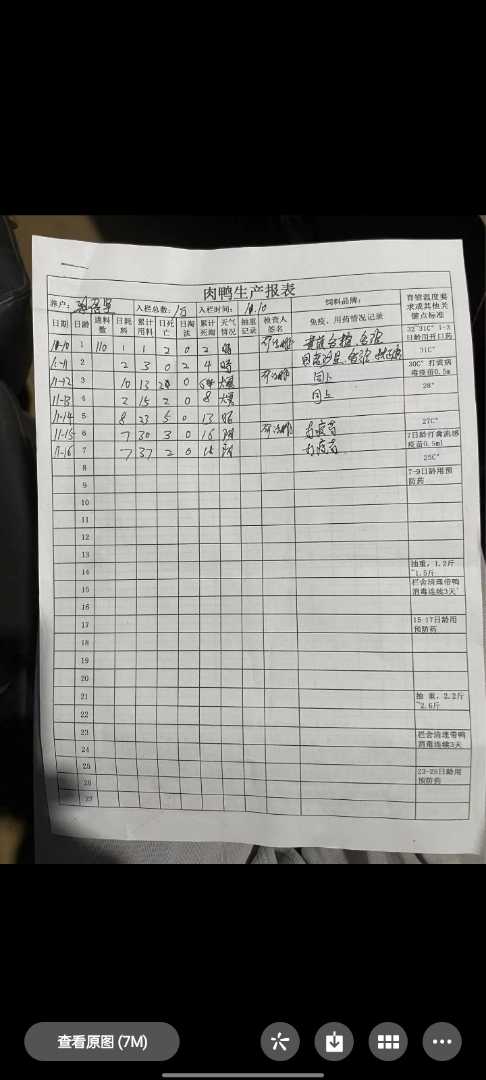 肉鸭生产报表
养户： 入栏总数：1万 入栏时间：10.10 饲料品牌：
日期 日龄 进料数 日耗料 累计用料 日死亡 日淘汰 累计死淘 天气情况 抽重记录 检查人签名 免疫、用药情况记录 育雏温度要求或其他关键点标准
10-10 1 110 1 1 2 0 2 晴 32-31C° 1-3日龄用开口药
11-11 2 2 3 0 2 4 晴 31C°
11-12 3 10 13 大雾 同上 30C° 打黄病毒疫苗0.5m
11-13 4 2 15 2 0 8 大雾 同上 28°
11-14 5 8 23 5 0 13
11-15 6 7 30 3 0 16 阴 27C° 7日龄打禽流感疫苗0.5ml
11-16 7 7 37 2 0 18 阴 25C°
8 7-9日龄用预防药
9
10
11
12
13
14 抽重，1.2斤~1.5斤
15 栏舍清理带鸭消毒连续3天
16
17 15-17日龄用预防药
18
19
20
21 抽 重，2.2斤~2.6斤
22
23 栏舍清理带鸭消毒连续3天
24
25 23-25日龄用预防药
26
27
查看原图 (7M)